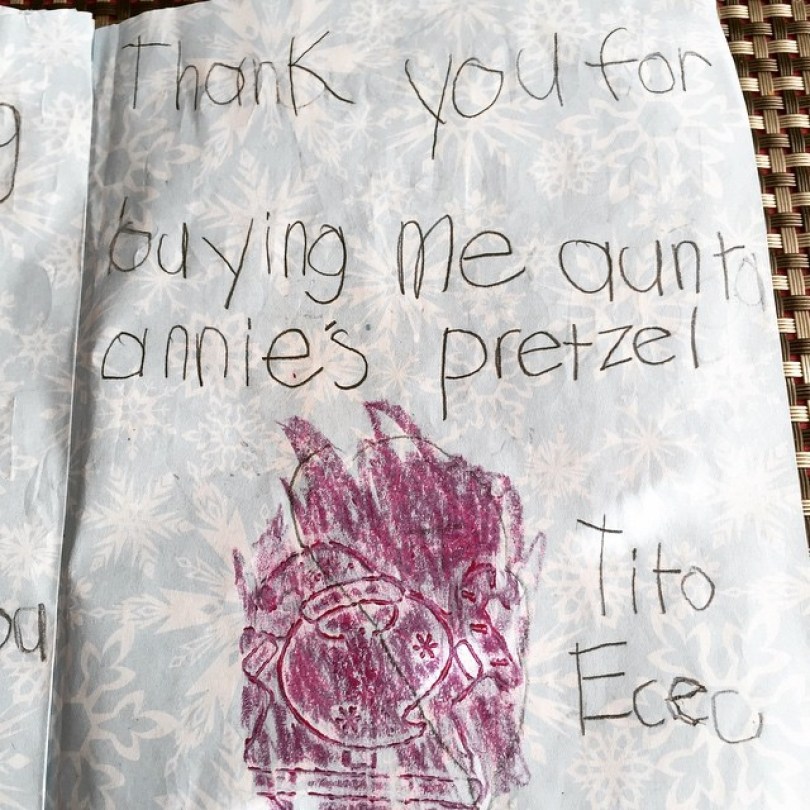 g
Thank you for
buying me aunta
annie's pretzel
Tito
Eceo
ou